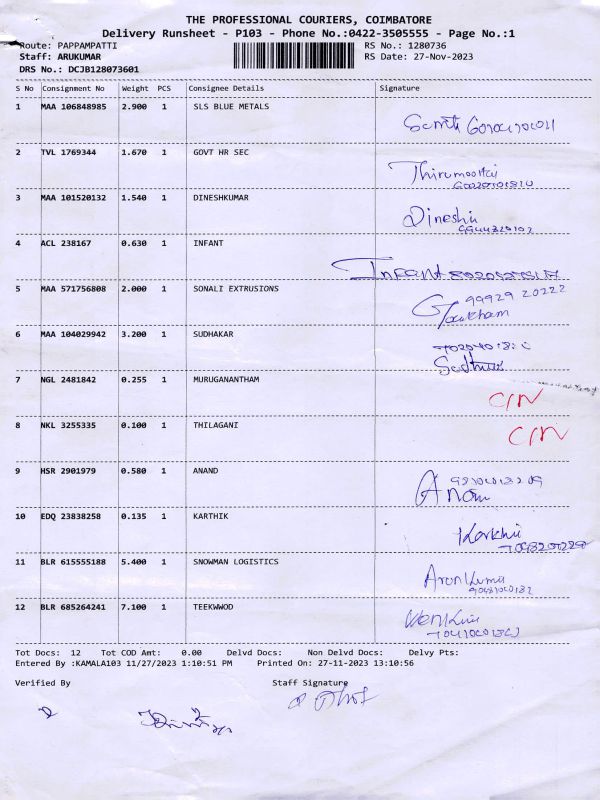 THE PROFESSIONAL COURIERS, COIMBATORE
Delivery Runsheet - P103 - Phone No.:0422-3505555 - Page No.:1
Route: PAPPAMPATTI RS No.: 1280736
Staff: ARUKUMAR RS Date: 27-Nov-2023
DRS No.: DCJB128073601
S No Consignment No Weight PCS Consignee Details Signature
1 MAA 106848985 2.900 1 SLS BLUE METALS
2 TVL 1769344 1.670 1 GOVT HR SEC
3 MAA 101520132 1.540 1 DINESHKUMAR Dinesh
4 ACL 238167 0.630 1 INFANT Infant
5 MAA 571756808 2.000 1 SONALI EXTRUSIONS 99929 20222
Gowtham
6 MAA 104029942 3.200 1 SUDHAKAR
7 NGL 2481842 0.255 1 MURUGANANTHAM C/N
8 NKL 3255335 0.100 1 THILAGANI C/N
9 HSR 2901979 0.580 1 ANAND
10 EDQ 23838258 0.135 1 KARTHIK
11 BLR 615555188 5.400 1 SNOWMAN LOGISTICS
12 BLR 685264241 7.100 1 TEEKWWOD
Tot Docs: 12 Tot COD Amt: 0.00 Delvd Docs: Non Delvd Docs: Delvy Pts:
Entered By :KAMALA103 11/27/2023 1:10:51 PM Printed On: 27-11-2023 13:10:56
Verified By Staff Signature